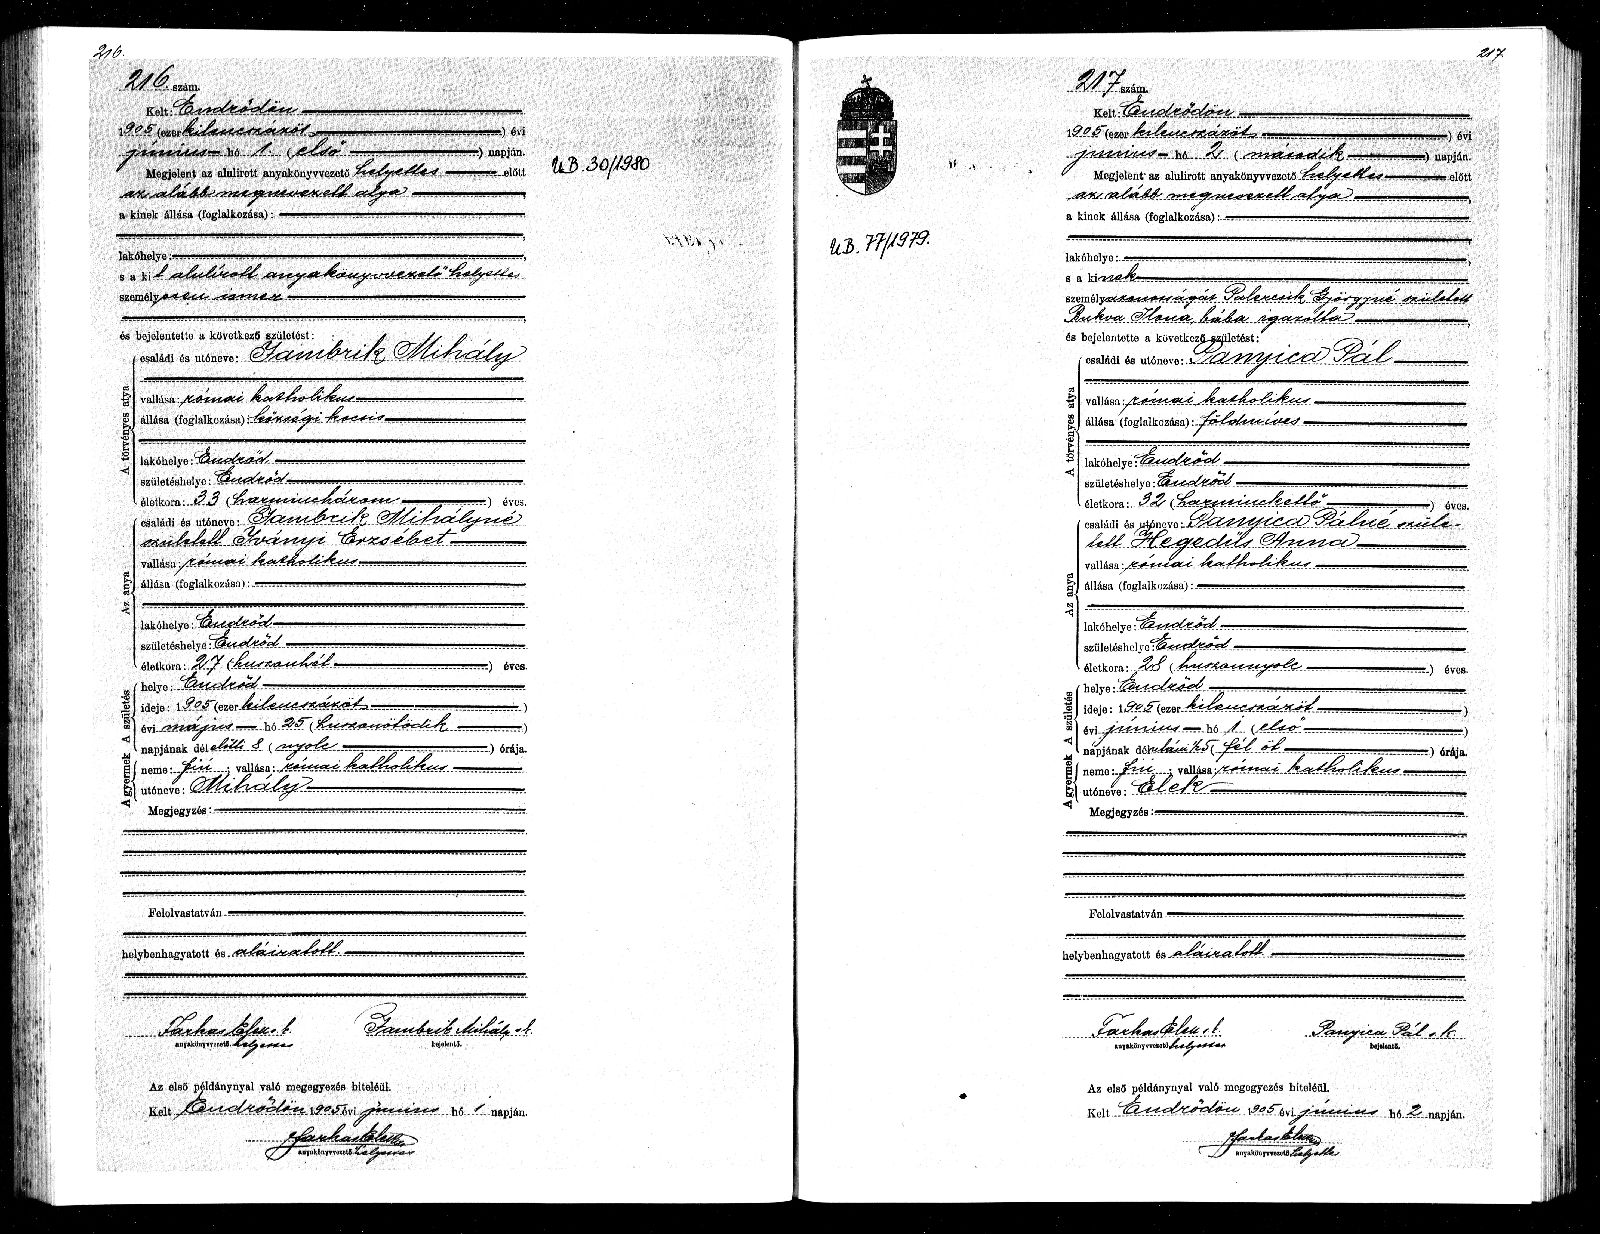 216.
216. szám.
Kelt: Endrődön
1905 (ezer kilencszázöt) évi
június hó 1. (első) napján.
Megjelent az alulirott anyakönyvvezető helyettes előtt
az alább megnevezett atya
a kinek állása (foglalkozása):
lakóhelye:
s a kit alulírott anyakönyvvezető helyettes
személyesen ismer
és bejelentette a következő születést:
A törvényes atya
családi és utóneve: Jambrik Mihály
vallása: római katholikus
állása (foglalkozása): községi kocsis
lakóhelye: Endrőd
születéshelye: Endrőd
életkora: 33 (harminchárom) éves.
Az anya
családi és utóneve: Jambrik Mihályné
született Iványi Erzsébet
vallása: római katholikus
állása (foglalkozása):
lakóhelye: Endrőd
születéshelye: Endrőd
életkora: 27 (huszonhét) éves.
A születés
helye: Endrőd
ideje: 1905 (ezer kilencszázöt)
évi május hó 25 (huszonötödik)
napjának dél előtti 8 (nyolc) órája.
A gyermek
neme: fiú; vallása: római katholikus
utóneve: Mihály
Megjegyzés:
Felolvastatván
helybenhagyatott és aláiratott.
Farkas Elek s. k. Jambrik Mihály s. k.
anyakönyvvezető helyettes bejelentő.
Az első példánynyal való megegyezés hiteléül.
Kelt Endrődön 1905 évi június hó 1 napján.
Farkas Elek
anyakönyvvezető helyettes
UB. 30/1980
217.
217 szám.
Kelt: Endrődön
1905 (ezer kilencszázöt) évi
június hó 2 (második) napján.
Megjelent az alulirott anyakönyvvezető helyettes előtt
az alább megnevezett atya
a kinek állása (foglalkozása):
lakóhelye:
s a kinek
személyazonosságát Palercsik Györgyné született
Bukva Ilona, bába igazolta
és bejelentette a következő születést:
A törvényes atya
családi és utóneve: Panyica Pál
vallása: római katholikus
állása (foglalkozása): földmíves
lakóhelye: Endrőd
születéshelye: Endrőd
életkora: 32 (harminckettő) éves.
Az anya
családi és utóneve: Panyica Pálné szüle-
tett Hegedüs Anna
vallása: római katholikus
állása (foglalkozása):
lakóhelye: Endrőd
születéshelye: Endrőd
életkora: 28 (huszonnyolc) éves
A születés
helye: Endrőd
ideje: 1905 (ezer kilencszázöt)
évi június hó 1 (első)
napjának délutáni ½5 (fél öt) órája.
A gyermek
neme: fiú; vallása: római katholikus
utóneve: Elek
Megjegyzés:
Felolvastatván
helybenhagyatott és aláiratott
Farkas Elek s. k. Panyica Pál s. k.
anyakönyvvezető helyettes bejelentő.
Az első példánynyal való megegyezés hiteléül.
Kelt Endrődön 1905 évi június hó 2 napján.
Farkas Elek
anyakönyvvezető helyettes
UB. 77/1979.